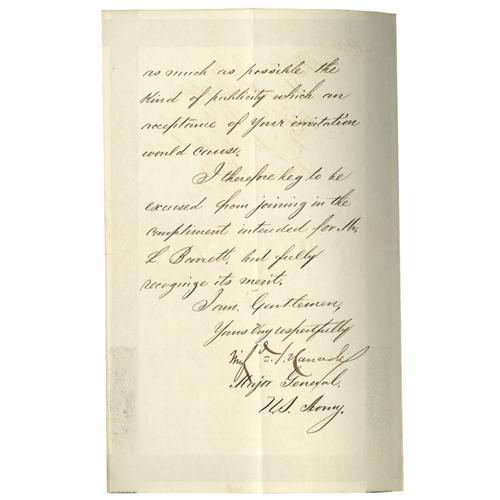 as much as possible the
kind of publicity which an
acceptance of your invitation
would cause.
I therefore beg to be
excused from joining in the
compliment intended for Mr
L. Barrett, but fully
recognize its merit.
I am, Gentlemen,
Yours Very respectfully
Winfd. S. Hancock
Major General.
U.S. Army.